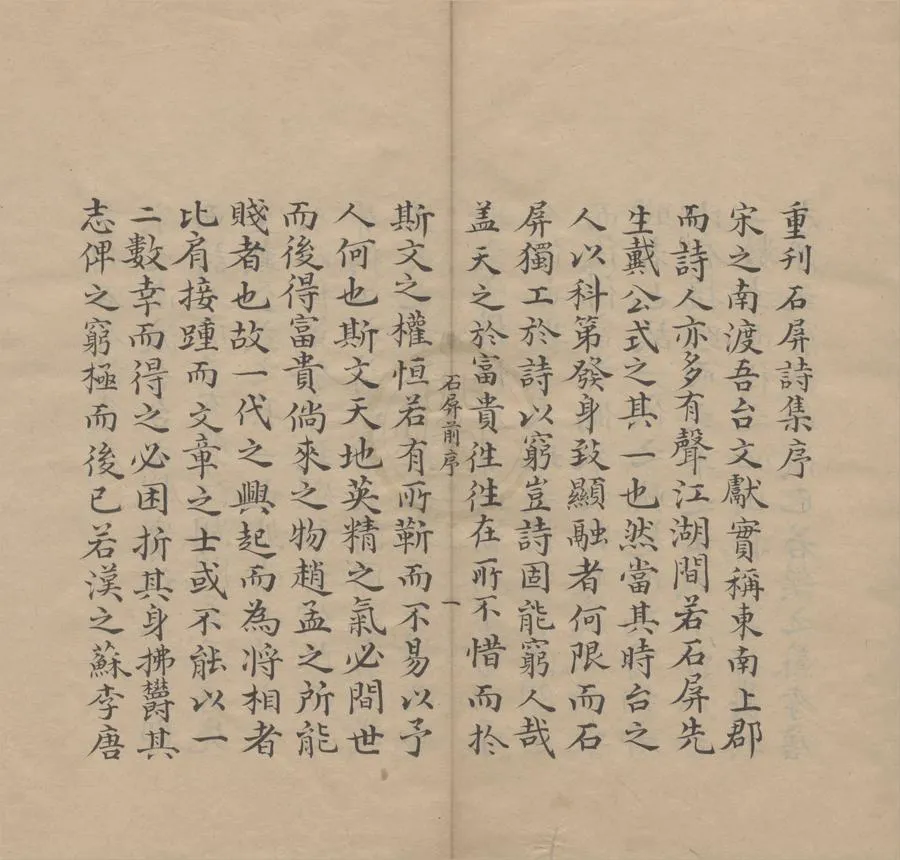 重刊石屏詩集序
宋之南渡吾台文獻實稱東南上郡
而詩人亦多有聲江湖間若石屏先
生戴公式之其一也然當其時台之
人以科第發身致顯融者何限而石
屏獨工於詩以窮豈詩固能窮人哉
盖天之於富貴徃徃在所不惜而扵
石屏前序
一
斯文之權恒若有所靳而不易以予
人何也斯文天地英精之氣必間世
而後得富貴倘來之物趙孟之所能
賤者也故一代之興起而為将相者
比肩接踵而文章之士或不能以一
二數幸而得之必困折其身拂欝其
志俾之窮極而後已若漢之蘇李唐